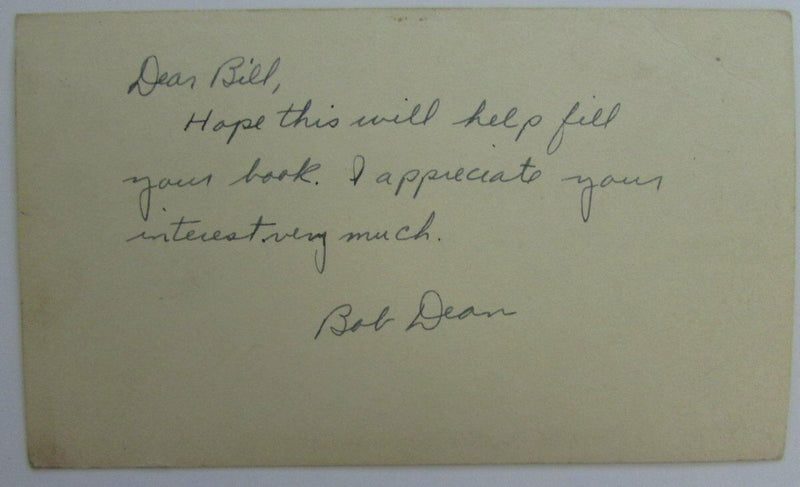 Dear Bill,
Hope this will help fill
your book. I appreciate your
interest very much.
Bob Dean